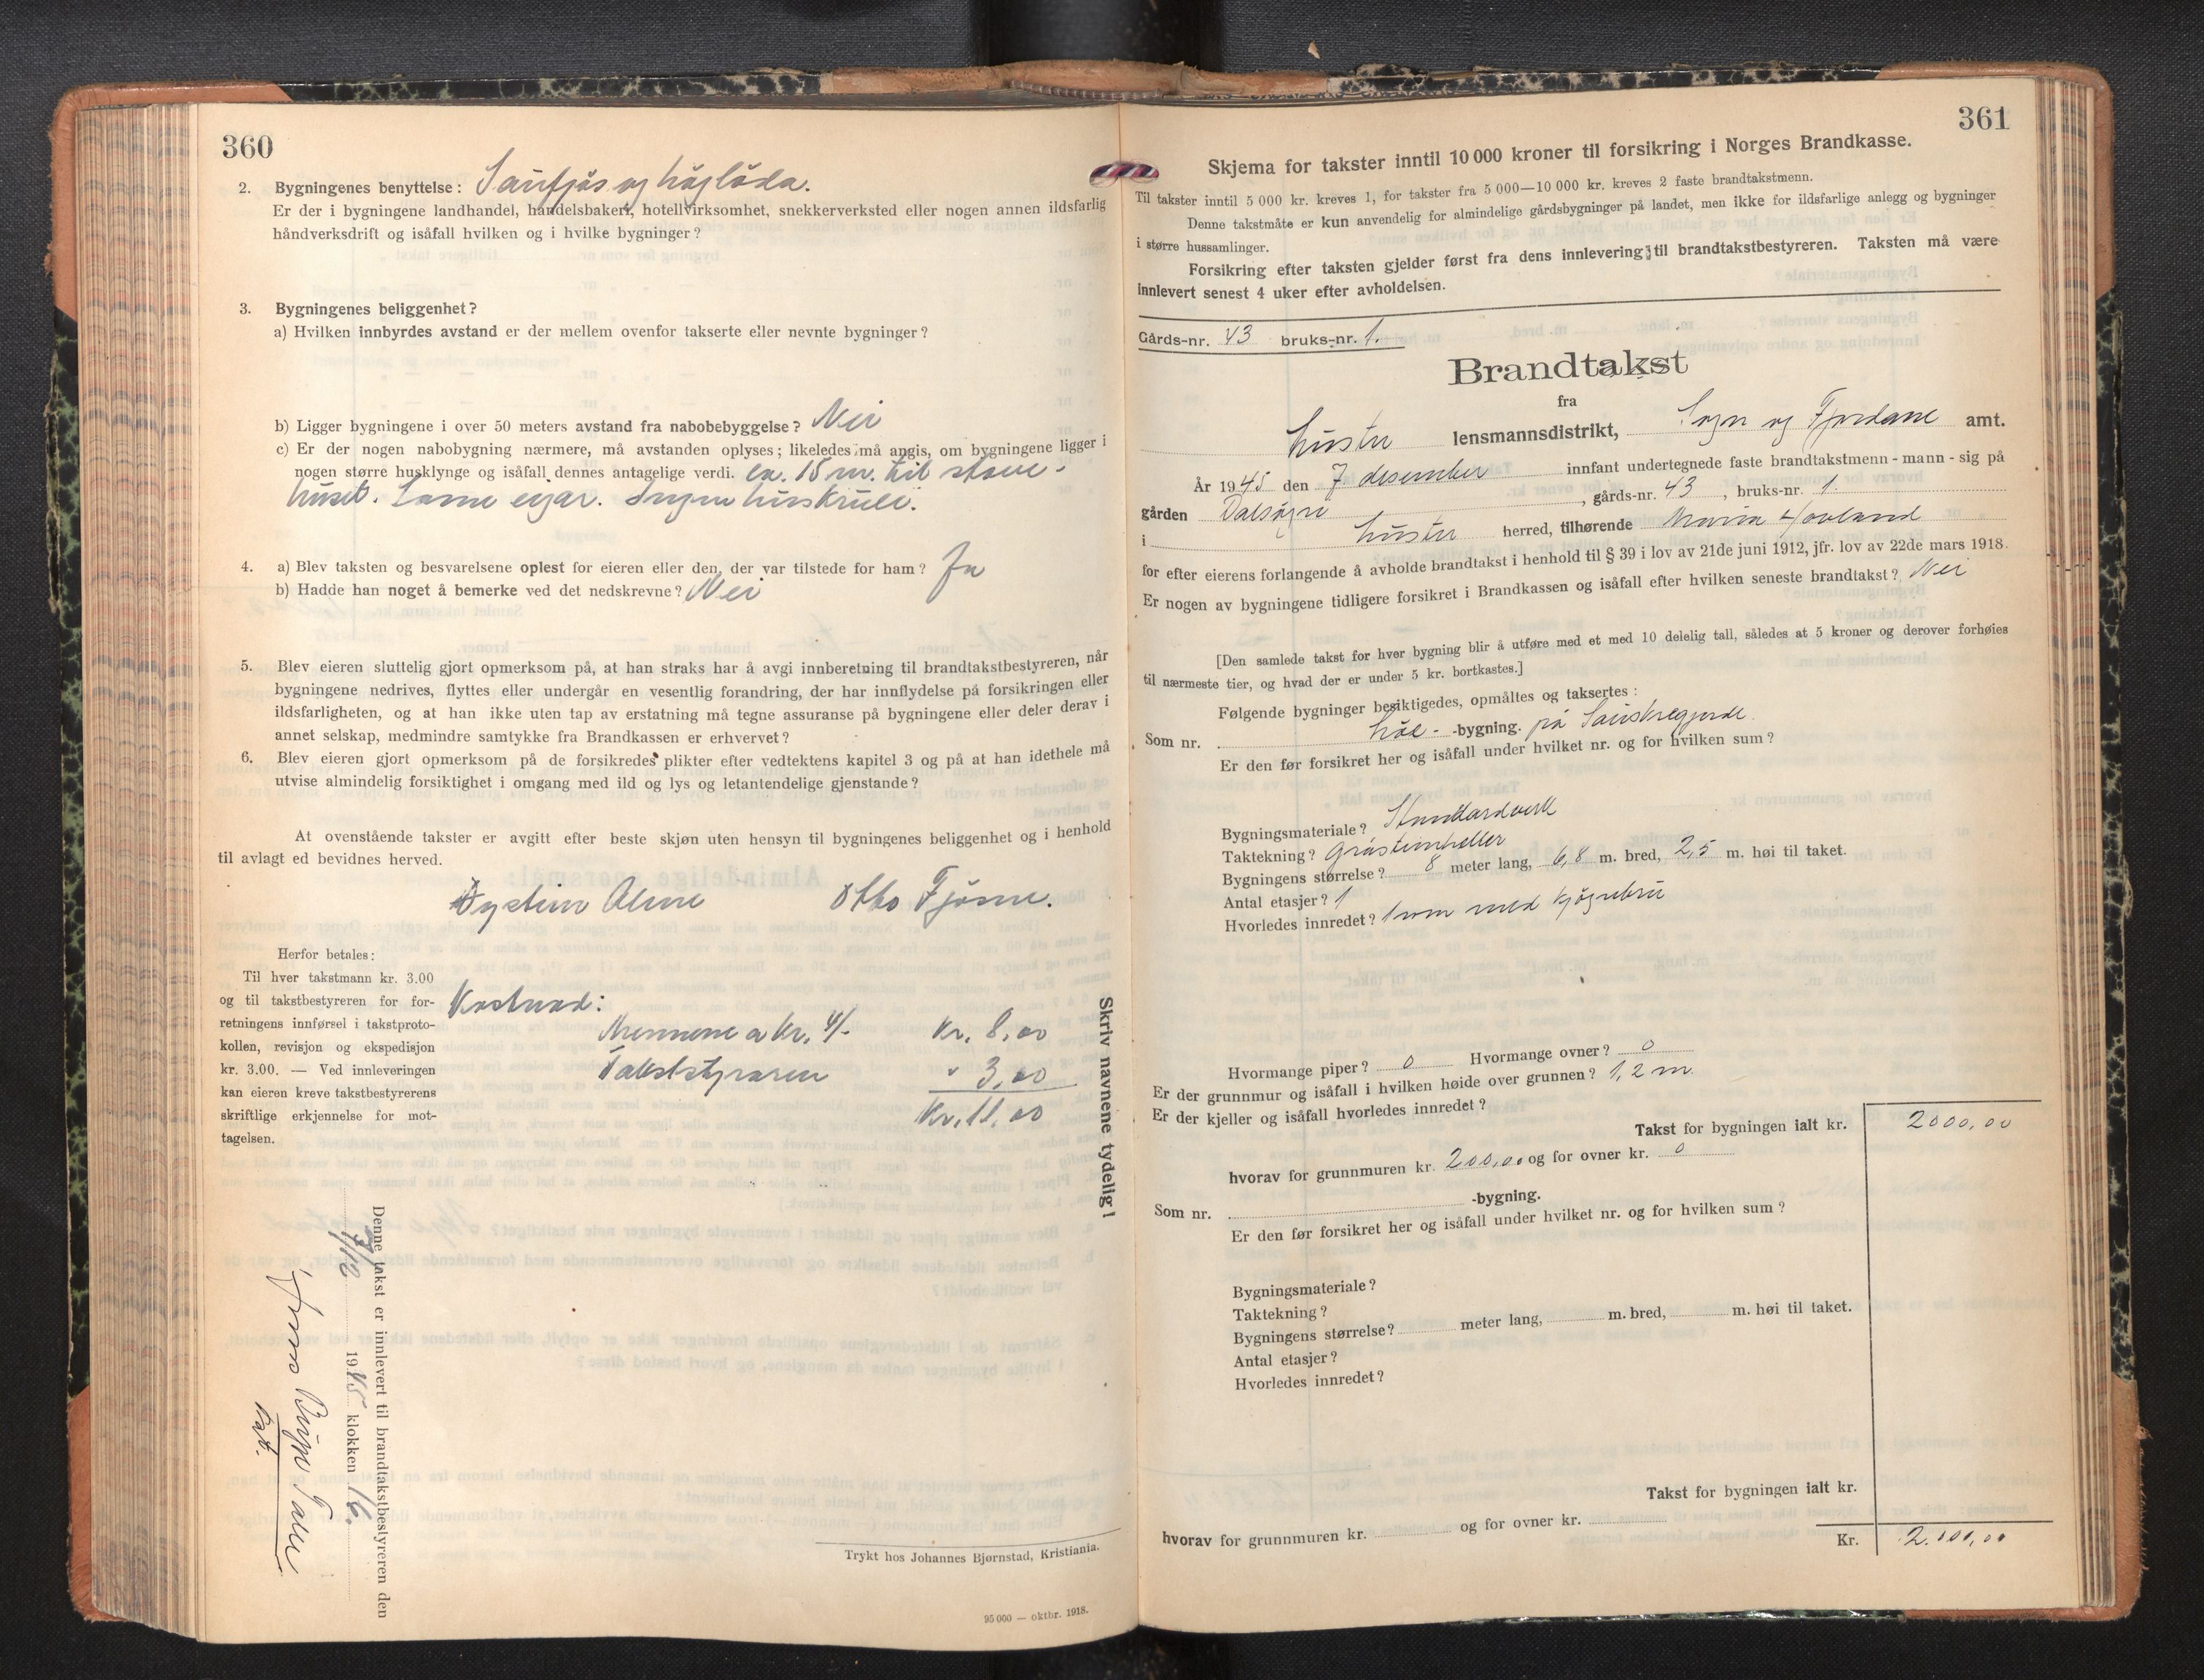 360
2. Bygningenes benyttelse: Saufjøs og høyløda.
Er der i bygningene landhandel, handelsbakeri, hotellvirksomhet, snekkerverksted eller nogen annen ildsfarlig
håndverksdrift og isåfall hvilken og i hvilke bygninger?
3. Bygningenes beliggenhet?
a) Hvilken innbyrdes avstand er der mellem ovenfor takserte eller nevnte bygninger?
b) Ligger bygningene i over 50 meters avstand fra nabobebyggelse? Nei
c) Er der nogen nabobygning nærmere, må avstanden oplyses; likeledes må angis, om bygningene ligger i
nogen større husklynge og isåfall dennes antagelige verdi. ca. 15 m. til stove-
huset. Same eigar. Ingen huskrull.
4. a) Blev taksten og besvarelsene oplest for eieren eller den, der var tilstede for ham? Ja
b) Hadde han noget å bemerke ved det nedskrevne? Nei
5. Blev eieren sluttelig gjort opmerksom på, at han straks har å avgi innberetning til brandtakstbestyreren, når
bygningene nedrives, flyttes eller undergår en vesentlig forandring, der har innflydelse på forsikringen eller
ildsfarligheten, og at han ikke uten tap av erstatning må tegne assuranse på bygningene eller deler derav i
annet selskap, medmindre samtykke fra Brandkassen er erhvervet?
6. Blev eieren gjort opmerksom på de forsikredes plikter efter vedtektens kapitel 3 og på at han idethele må
utvise almindelig forsiktighet i omgang med ild og lys og letantendelige gjenstande?
At ovenstående takster er avgitt efter beste skjøn uten hensyn til bygningenes beliggenhet og i henhold
til avlagt ed bevidnes herved.
Øystein Alme Otto Fjøsne.
Herfor betales:
Til hver takstmann kr. 3.00
og til takstbestyreren for for-
retningens innførsel i takstproto-
kollen, revisjon og ekspedisjon
kr. 3.00. — Ved innleveringen
kan eieren kreve takstbestyrerens
skriftlige erkjennelse for mot-
tagelsen.
Kostnad:
Mennene a kr. 4/- Kr. 8,00
Takststyraren " 3,00
Kr. 11,00
Skriv navnene tydelig!
Denne takst er innlevert til brandtakstbestyreren den
12 1945 klokken 16.
Trykt hos Johannes Bjørnstad, Kristiania.
95 000 — oktbr. 1918.
361
Skjema for takster inntil 10 000 kroner til forsikring i Norges Brandkasse.
Til takster inntil 5 000 kr. kreves 1, for takster fra 5 000—10 000 kr. kreves 2 faste brandtakstmenn.
Denne takstmåte er kun anvendelig for almindelige gårdsbygninger på landet, men ikke for ildsfarlige anlegg og bygninger
i større hussamlinger.
Forsikring efter taksten gjelder først fra dens innlevering til brandtakstbestyreren. Taksten må være
innlevert senest 4 uker efter avholdelsen.
Gårds-nr. 43 bruks-nr. 1.
Brandtakst
fra
Luster lensmannsdistrikt, Sogn og Fjordane amt.
År 1945 den 7 desember innfant undertegnede faste brandtakstmenn - mann - sig på
gården Dalsøyri, gårds-nr. 43, bruks-nr. 1.
i Luster herred, tilhørende Maria Hovland
for efter eierens forlangende å avholde brandtakst i henhold til § 39 i lov av 21de juni 1912, jfr. lov av 22de mars 1918.
Er nogen av bygningene tidligere forsikret i Brandkassen og isåfall efter hvilken seneste brandtakst? Nei
[Den samlede takst for hver bygning blir å utføre med et med 10 delelig tall, således at 5 kroner og derover forhøies
til nærmeste tier, og hvad der er under 5 kr. bortkastes.]
Følgende bygninger besiktigedes, opmåltes og taksertes:
Som nr. Løe- -bygning. på
Er den før forsikret her og isåfall under hvilket nr. og for hvilken sum?
Bygningsmateriale? Standardverk
Taktekning? Gråsteinheller
Bygningens størrelse? 8 meter lang, 6,8 m. bred, 2,5 m. høi til taket.
Antal etasjer? 1
Hvorledes innredet? 1 rom med kjøyrebru
Hvormange piper? 0 Hvormange ovner? 0
Er der grunnmur og isåfall i hvilken høide over grunnen? 1,2 m
Er der kjeller og isåfall hvorledes innredet?
Takst for bygningen ialt kr. 2000,00
hvorav for grunnmuren kr. 200,00 og for ovner kr. 0
Som nr. -bygning.
Er den før forsikret her og isåfall under hvilket nr. og for hvilken sum?
Bygningsmateriale?
Taktekning?
Bygningens størrelse? meter lang, m. bred, m. høi til taket.
Antal etasjer?
Hvorledes innredet?
Takst for bygningen ialt kr.
hvorav for grunnmuren kr. og for ovner kr.
Kr. 2.000,00